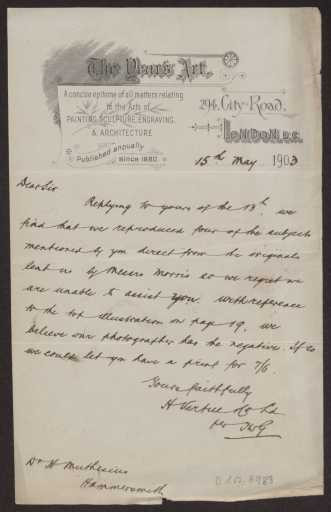 The Year's Art.
A concise epitome of all matters relating
to the Arts of
PAINTING, SCULPTURE, ENGRAVING,
& ARCHITECTURE
Published annually
since 1880
294, City Road,
LONDON, E.C.
15th May 1903
Dear Sir
Replying to yours of the 13th. we
find that we reproduced four of the subjects
mentioned by you direct from the originals
lent us by Messrs Morris so we regret we
are unable to assist you. With reference
to the top illustration on page 19, we
believe our photographer has the negative. if so
we could let you have a print for 7/6.
Yours faithfully
H Virtue & Co Ld
per
Dr H Muthesius
Hammersmith